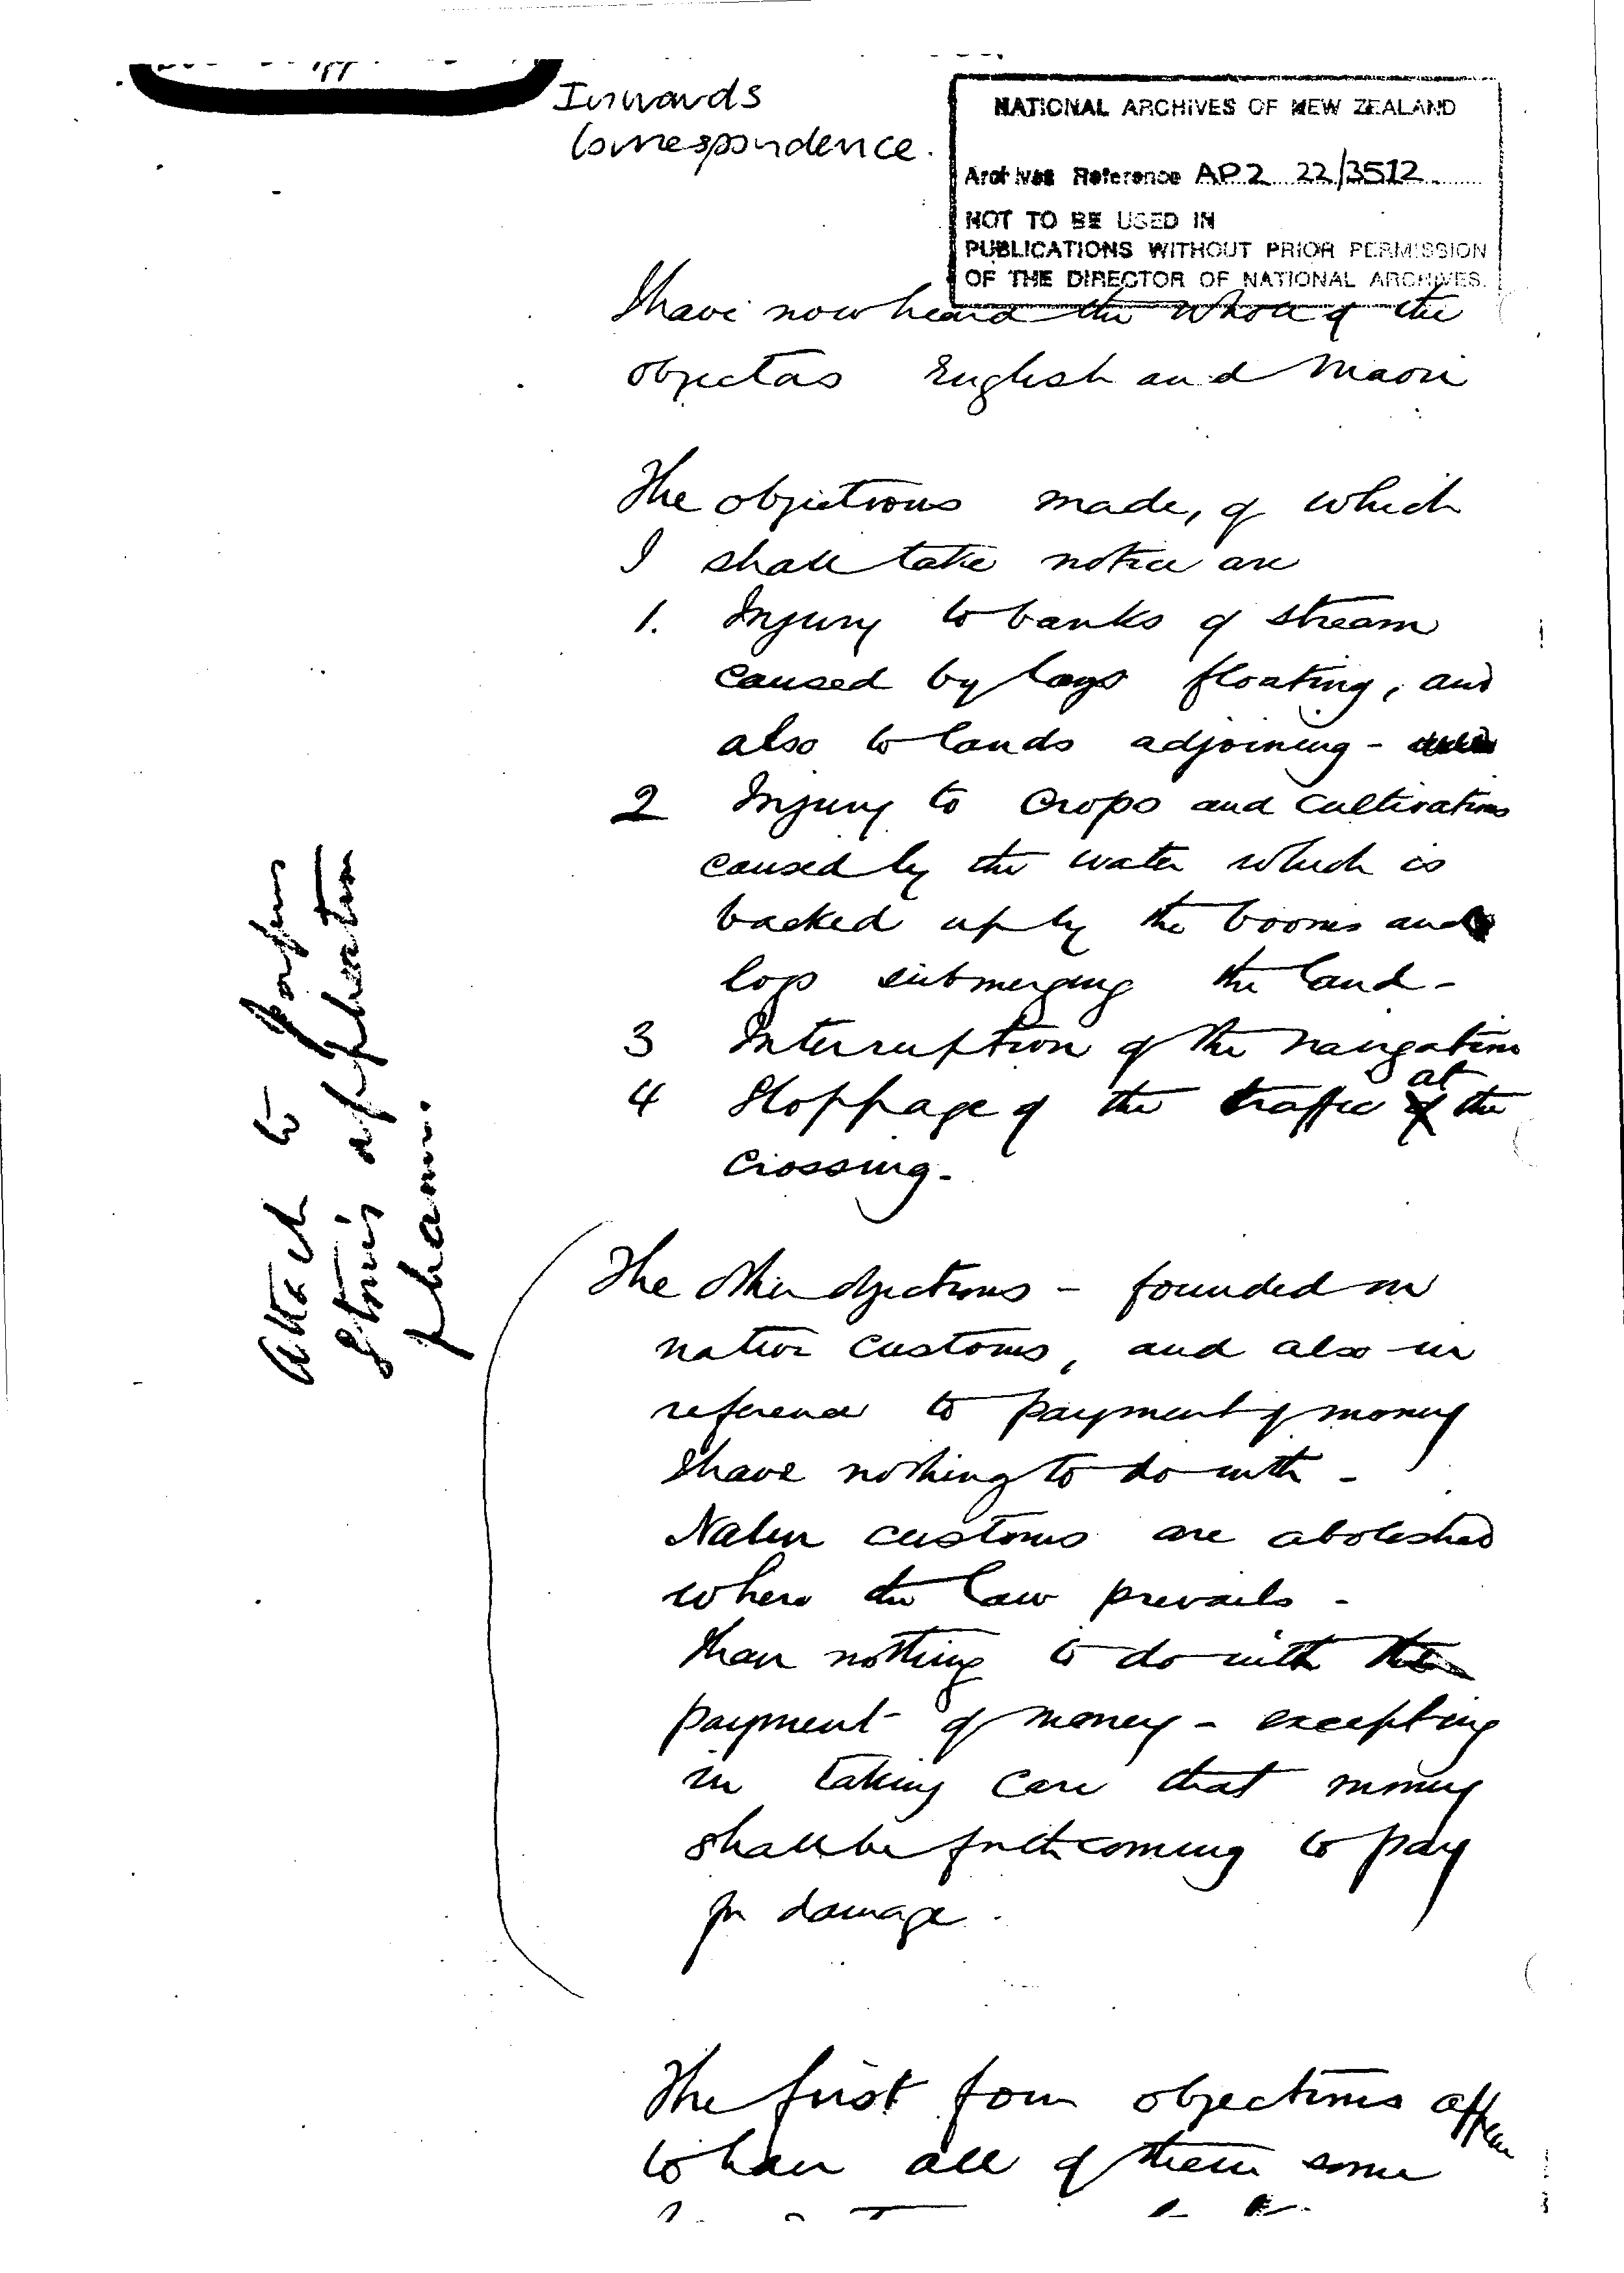 Inwards
Correspondence.
NATIONAL ARCHIVES OF NEW ZEALAND
Archives Reference AP2 22/3512
NOT TO BE USED IN
PUBLICATIONS WITHOUT PRIOR PERMISSION
OF THE DIRECTOR OF NATIONAL ARCHIVES.
I have now heard the whole of the
objectors English and Maori
The objections made, of which
I shall take notice are
1. Injury to banks of stream
caused by logs floating, and
also to lands adjoining -
2 Injury to crops and cultivations
caused by the water which is
backed up by the booms and
logs submerging the land -
3 Interruption of the navigation
4 Stoppage of the traffic at the
crossing.
Attach to papers
application
The other objections - founded on
native customs, and also in
reference to payment of money
I have nothing to do with -
Native customs are abolished
where the law prevails -
I have nothing to do with
payment of money - excepting
in taking care that money
shall be forthcoming to pay
for damage.
The first four objections appear
to have all of them some